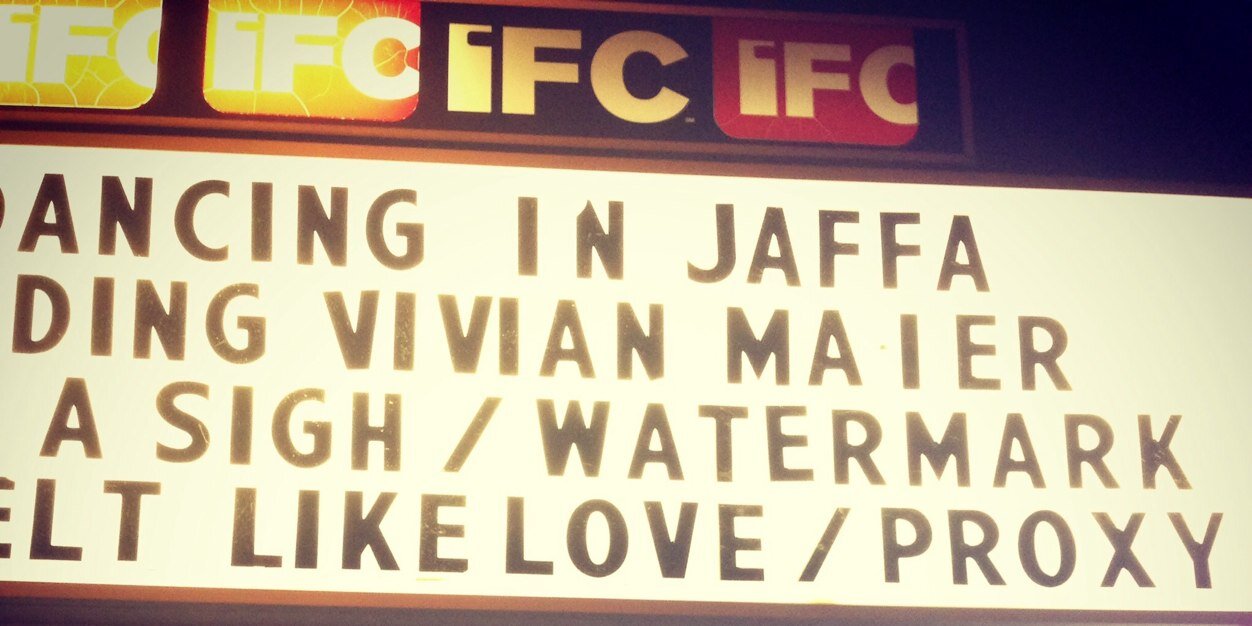 iFC iFC iFC iFC
DANCING IN JAFFA
DING VIVIAN MAIER
A SIGH / WATERMARK
ELT LIKE LOVE / PROXY